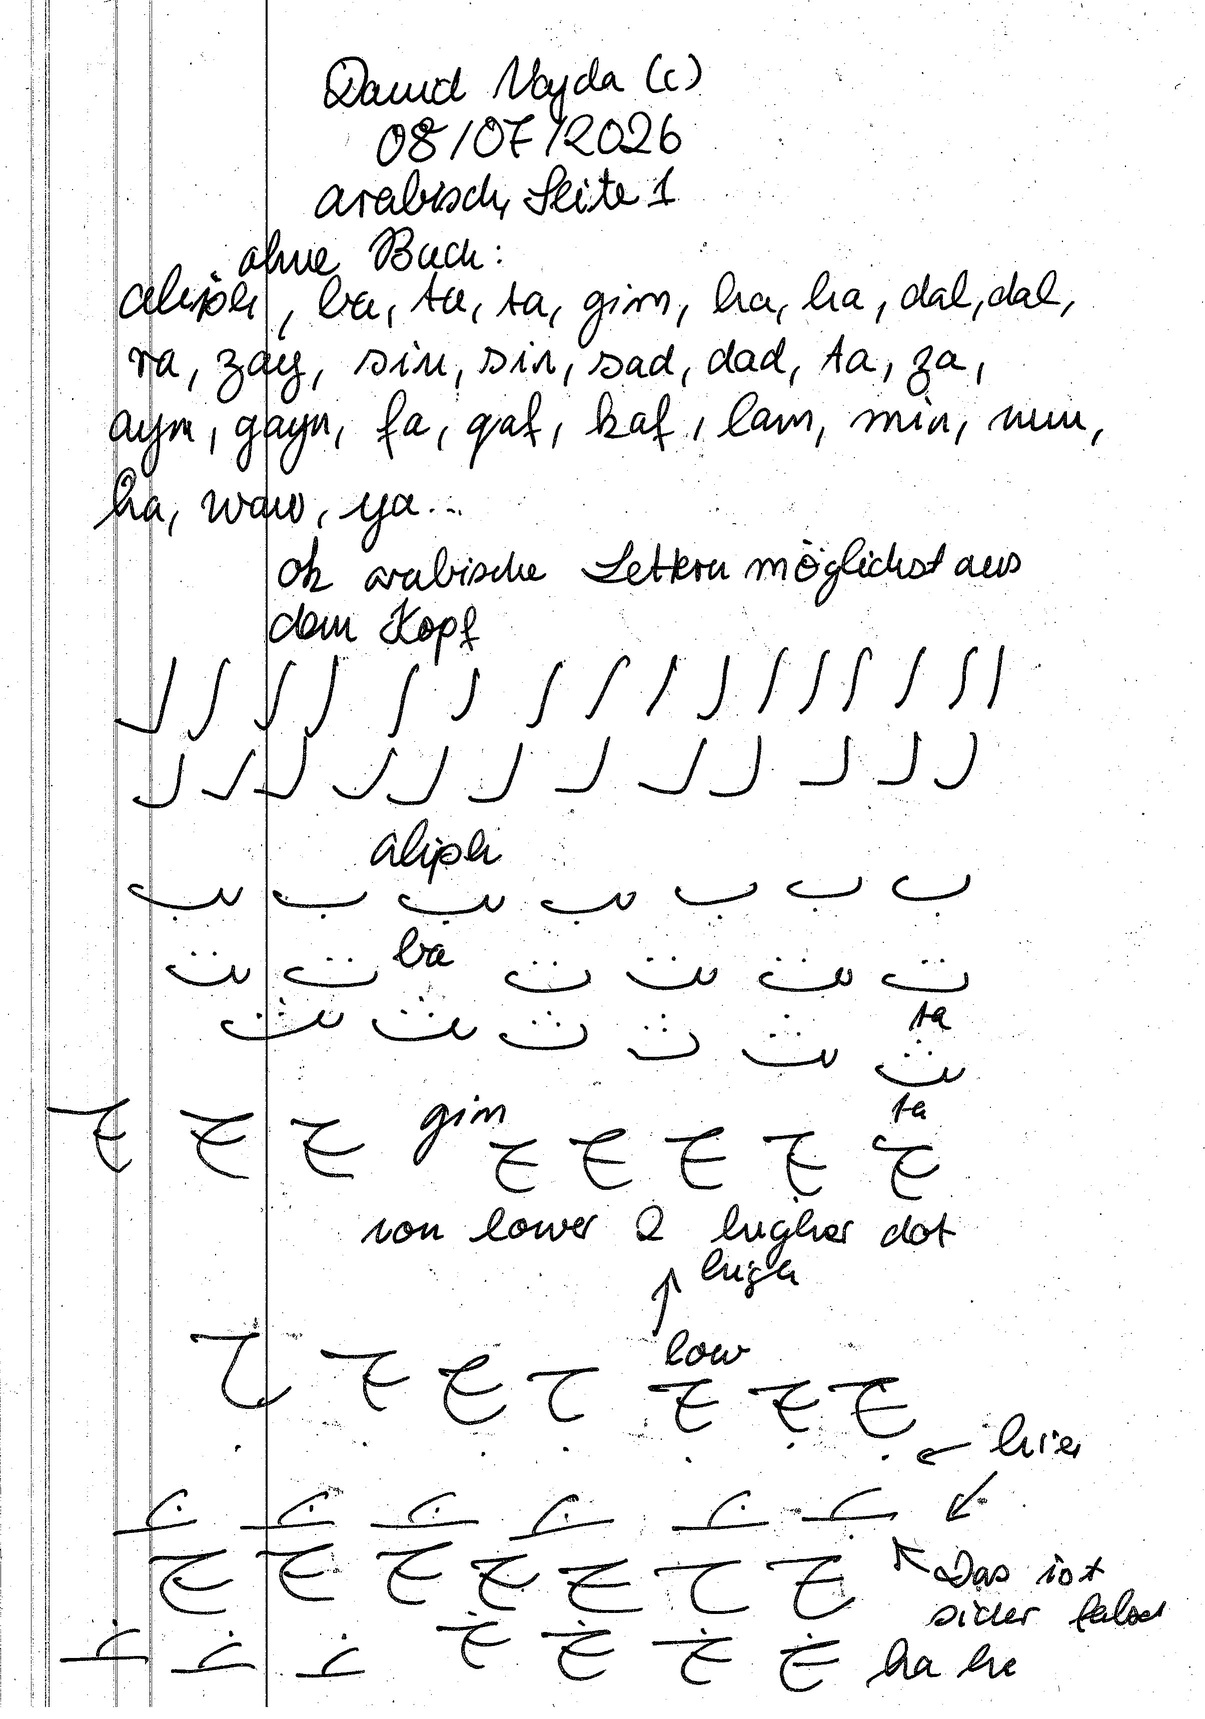 David Vajda (c)
08/07/2026
arabisch, Seite 1
ohne Buch:
aliph, ba, ta, ta, gim, ha, ha, dal, dal,
ra, zay, sin, sin, sad, dad, ta, za,
ayn, gayn, fa, qaf, kaf, lam, min, nun,
ha, waw, ya...
ok arabische Lettern möglichst aus
dem Kopf
aliph
ب ب ب ب ب ب ب
ba
ت ت ت ت ت ت
ta
ث ث ث ث ث ث
ta
gim
von lower 2 higher dot
high
↑
low
← hier
Das ist
sicher falsch
ha he